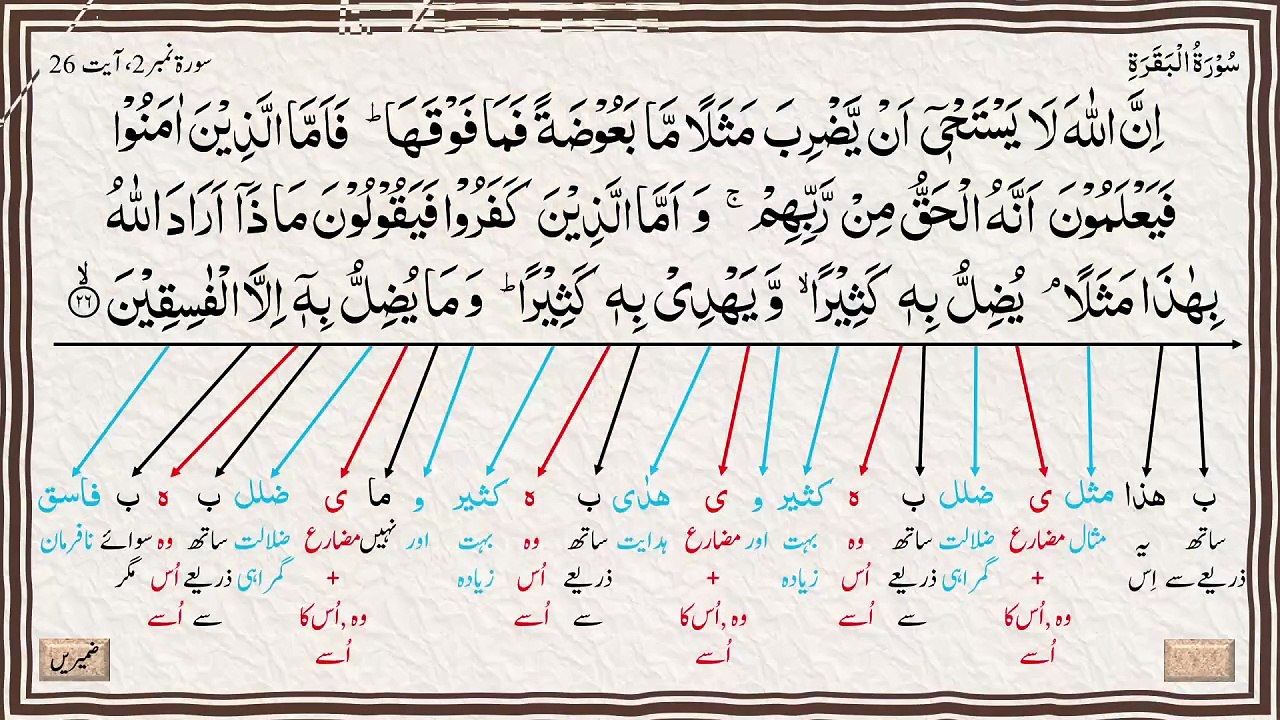 سُوْرَةُ الْبَقَرَةِ
سورۃ نمبر 2، آیت 26
اِنَّ اللّٰهَ لَا يَسْتَحْيٖٓ اَنْ يَّضْرِبَ مَثَلًا مَّا بَعُوْضَةً فَمَا فَوْقَهَا ؕ فَاَمَّا الَّذِيْنَ اٰمَنُوْا
فَيَعْلَمُوْنَ اَنَّهُ الْحَقُّ مِنْ رَّبِّهِمْ ۚ وَ اَمَّا الَّذِيْنَ كَفَرُوْا فَيَقُوْلُوْنَ مَا ذَاۤ اَرَادَ اللّٰهُ
بِهٰذَا مَثَلًا ۘ يُضِلُّ بِهٖ كَثِيْرًا ۙ وَّ يَهْدِيْ بِهٖ كَثِيْرًا ؕ وَ مَا يُضِلُّ بِهٖۤ اِلَّا الْفٰسِقِيْنَ ۙ ۲۶
ب ھذا مثل ی ضلل ب ہ کثیر و ی ھدٰی ب ہ کثیر و ما ی ضلل ب ہ ب فاسق
ساتھ یہ مثال مضارع ضلالت ساتھ وہ بہت اور مضارع ہدایت ساتھ وہ بہت اور نہیں مضارع ضلالت ساتھ وہ سوائے نافرمان
ذریعے سے اِس + گمراہی ذریعے اُس زیادہ + ذریعے اُس زیادہ + گمراہی ذریعے اُس مگر
وہ ,اُس کا سے اُسے وہ ,اُس کا سے اُسے وہ ,اُس کا سے اُسے
اُسے اُسے اُسے
ضمیریں